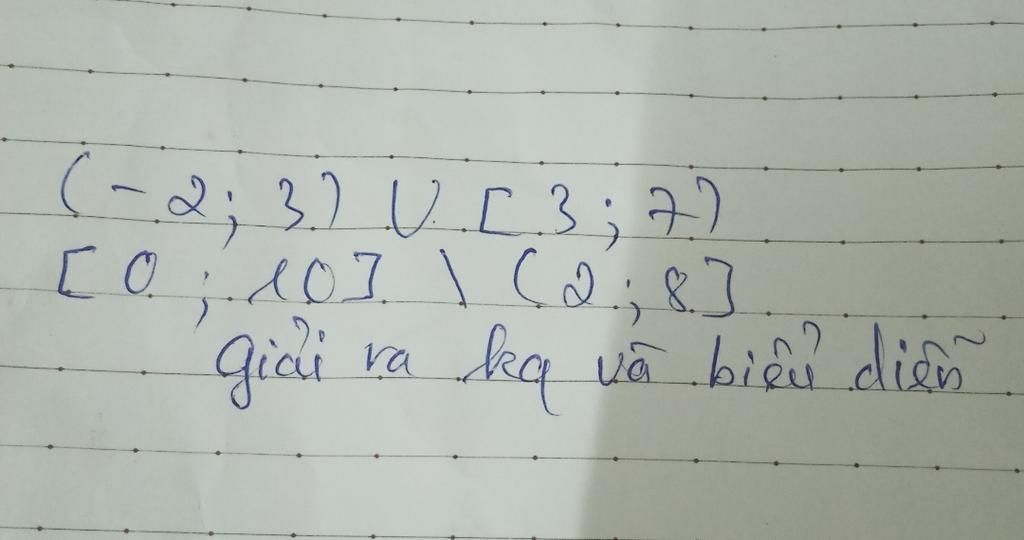 (-2; 3) ∪ [3; 7)
[0; 10] \ (2; 8]
giải ra kq và biểu diễn